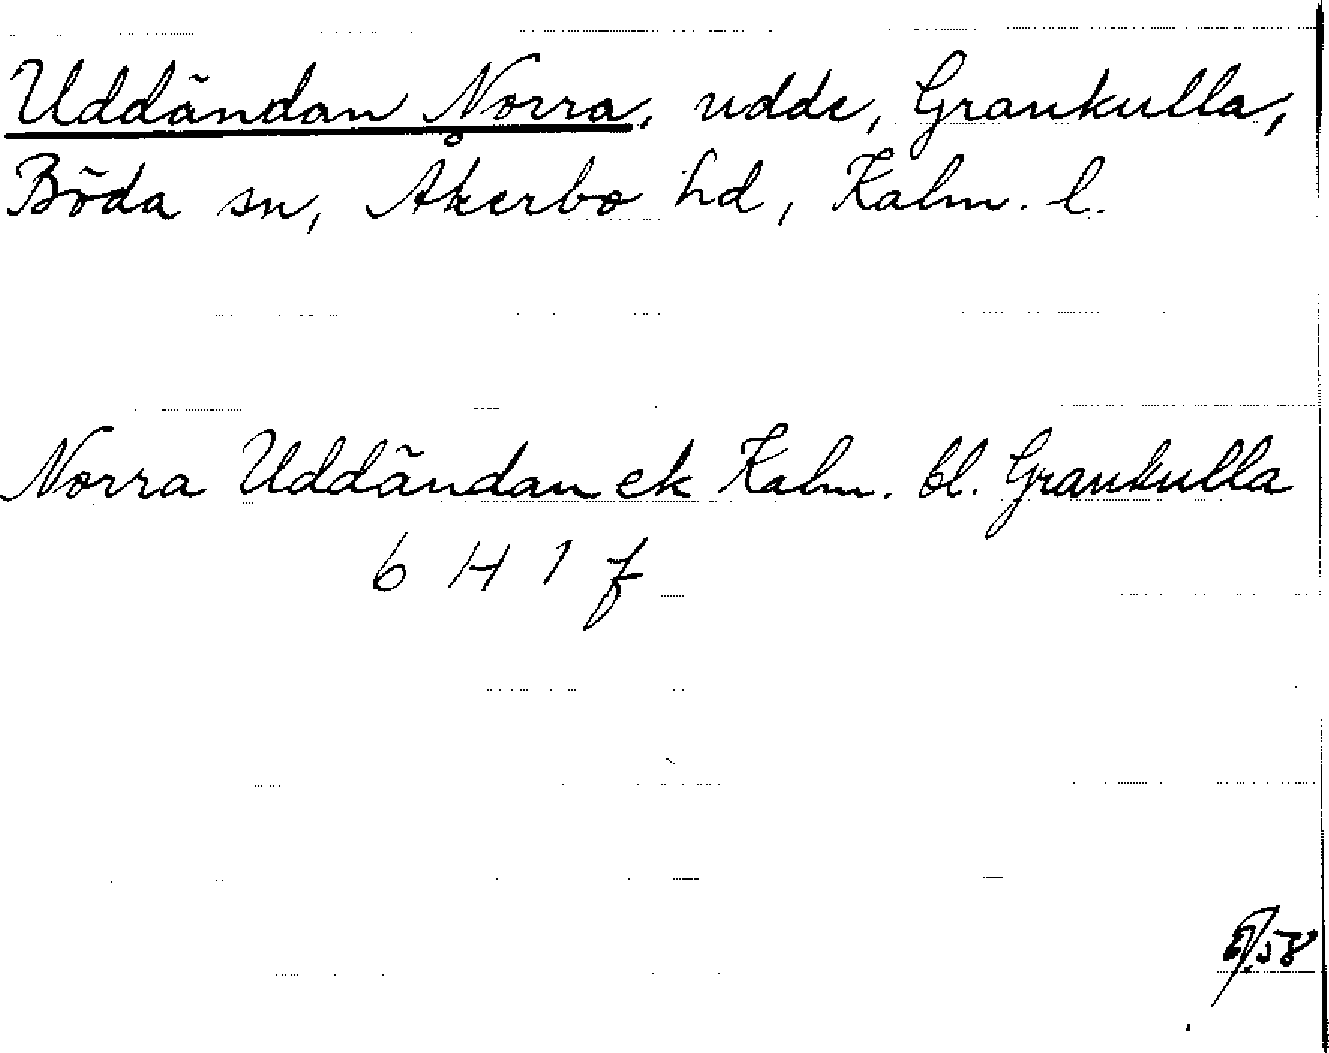 Uddändan Norra, udde, Grankulla,
Böda sn, Åkerbo hd, Kalm. l.
Norra Uddändan ek Kalm. bl. Grankulla
6 H 1 f